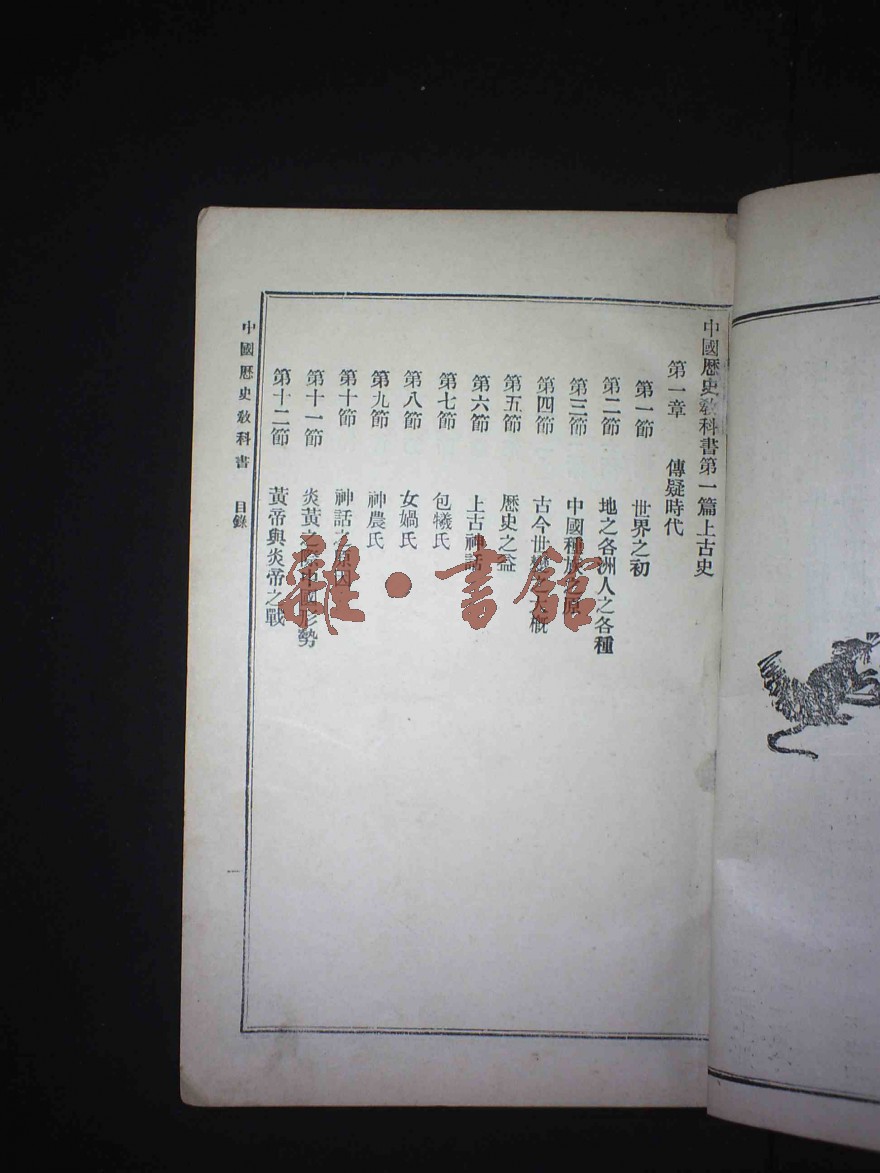 中國歷史教科書第一篇上古史
第一章　傳疑時代
第一節　世界之初
第二節　地之各洲人之各種
第三節　中國種族之原
第四節　古今世變之大概
第五節　歷史之益
第六節　上古神話
第七節　包犧氏
第八節　女媧氏
第九節　神農氏
第十節　神話之原因
第十一節　炎黃之際中國形勢
第十二節　黃帝與炎帝之戰
中國歷史教科書　目錄
一
雜·書館